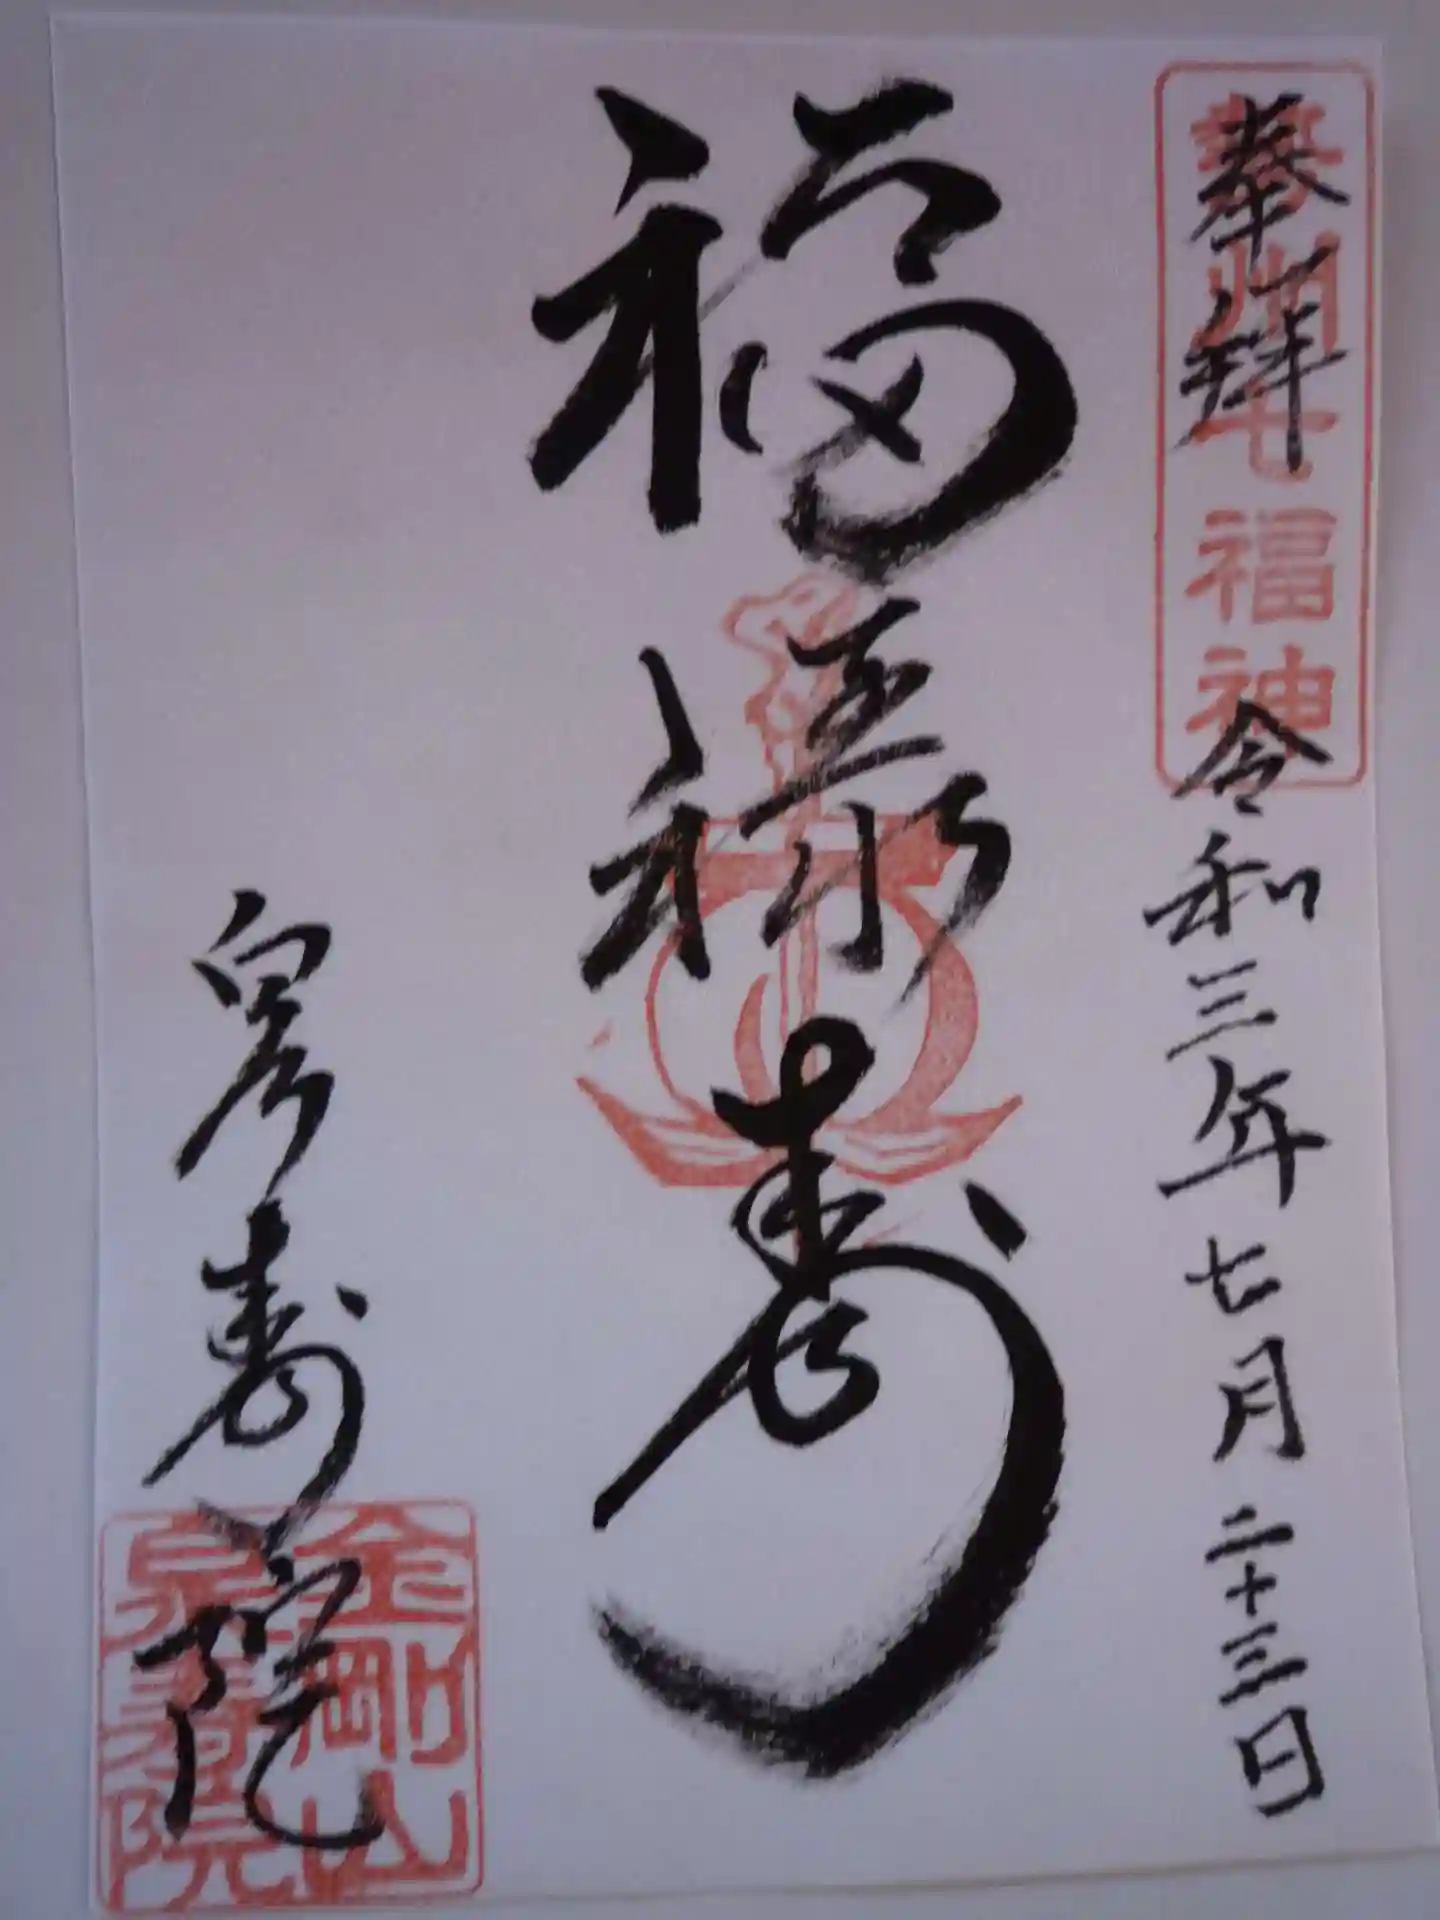 奉拝
州七福神
令和三年七月二十三日
福禄寿
泉寿院
金剛山
泉寿院